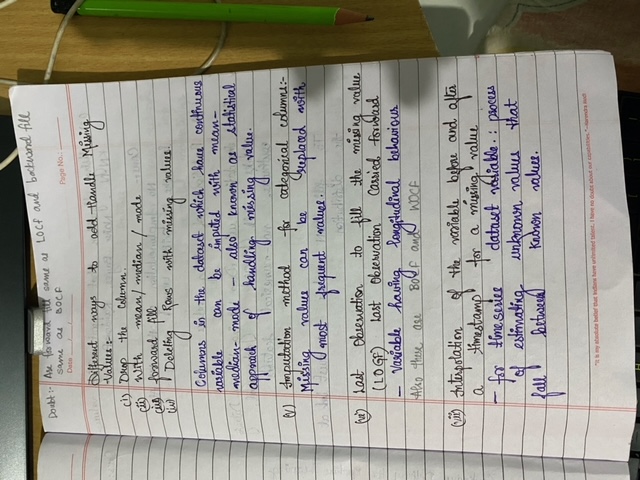 Doubt:- Are forward fill same as LOCF and backward fill
same as BOCF
Date __/__/__ Page No.:
Different ways to add Handle Missing
Values:-
(i) Drop the column.
(ii) With mean/median/mode
(iii) forward fill
(iv) Deleting Rows with missing values.
Columns in the dataset which have continuous
variable can be imputed with mean-
median-mode - also known as statistical
approach of handling missing value.
(v) Imputation method for categorical columns:-
Missing values can be replaced with
most frequent values.
(vi) Last Observation to fill the missing value
(LOGF) Last Observation Carried forward
- Variable having longitudinal behaviour
Also these are BOCF and WOCF
(vii) Interpolation of the variable before and after
a timestamp for a missing value
- for timeseries dataset variable.: process
of estimating unknown values that
fall between known values.
"It is my absolute belief that Indians have unlimited talent. I have no doubts about our capabilities." -Narendra Modi